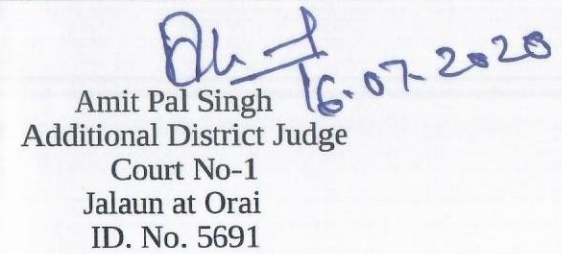 16.07.2020
Amit Pal Singh
Additional District Judge
Court No-1
Jalaun at Orai
ID. No. 5691